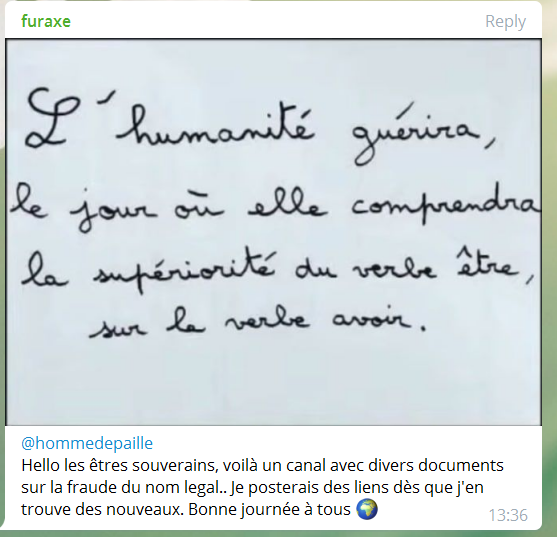 furaxe
Reply
L'humanité guérira,
le jour où elle comprendra
la supériorité du verbe être,
sur le verbe avoir.
@hommedepaille
Hello les êtres souverains, voilà un canal avec divers documents
sur la fraude du nom legal.. Je posterais des liens dès que j'en
trouve des nouveaux. Bonne journée à tous 🌍
13:36